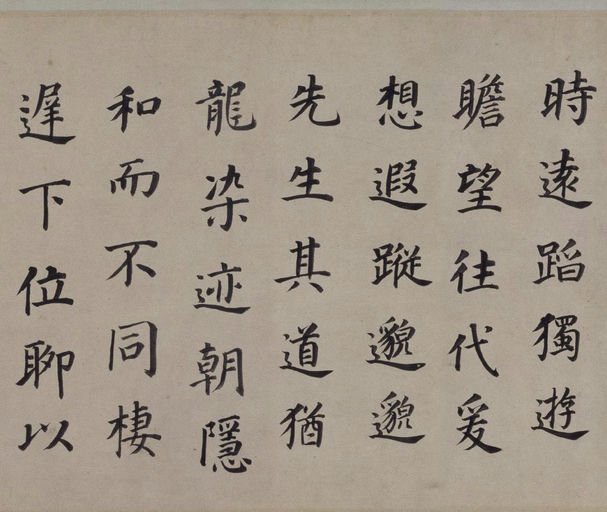 時遠蹈獨遊
瞻望往代爰
想遐蹤邈邈
先生其道猶
龍染迹朝隱
和而不同棲
遲下位聊以